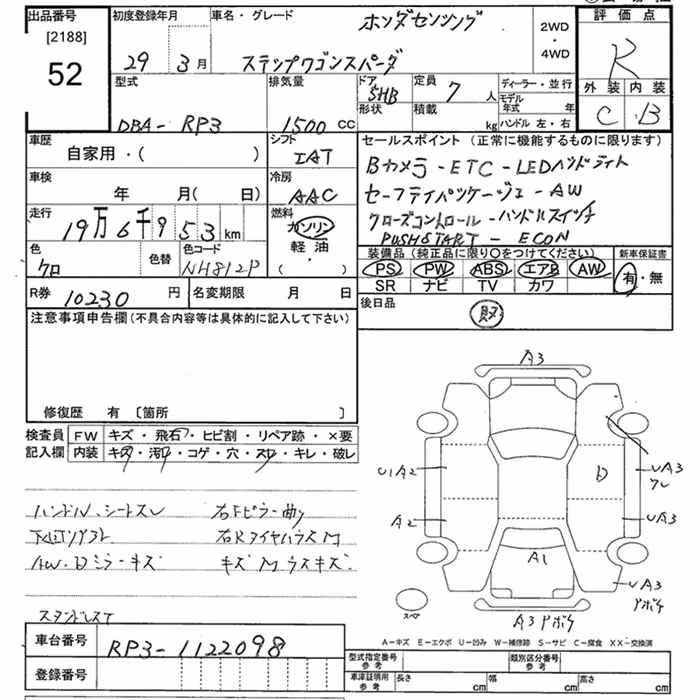 出品番号 初度登録年月 車名・グレード ホンダセンシング 2WD・4WD 評価点
[2188]
52 29 3月 ステップワゴンスパーダ R
型式 排気量 ドア 5HB 形状 定員 7人 積載 kg ディーラー・並行 モデル年式 年 ハンドル 左・右 外装 内装
DBA- RP3 1500 CC C B
車歴 自家用・( ) シフト IAT
セールスポイント(正常に機能するものに限ります)
Bカメラ-ETC-LEDヘッドライト
セーフティパッケージ-AW
クローズコントロール-ハンドルスイッチ
PUSHSTART-ECON
車検 年 月( 日) 冷房 AAC
走行 19万6千953km 燃料 ガソリン 軽油 ( ・ )
色 クロ 色替 色コード NH812P
装備品(純正品に限り○をつけてください) 新車保証書
PS PW ABS エアB AW 有・無
SR ナビ TV カワ
R券 10230円 名変期限 月 日
後日品 取
注意事項申告欄(不具合内容等は具体的に記入して下さい)
修復歴 有 〔箇所 〕
検査員記入欄 FW キズ・飛石・ヒビ割・リペア跡・×要
内装 キズ・汚れ・コゲ・穴・スレ・キレ・破レ
ハンドル、シートスレ 右Fピラー曲り
下廻りサビ 右RタイヤハウスM
AW・Dミラーキズ キズMウスキズ
スタンドレスT
A3
U1A2 D UA3
クレ
A2 UA3
A1
UA3
スペア A3
A-キズ E-エクボ U-凹み W-補修跡 S-サビ C-腐食 XX-交換済
車台番号 RP3-1122098
登録番号
型式指定番号 参考 類別区分番号 参考
車庫証明用 参考 長さ cm 幅 cm 高さ cm